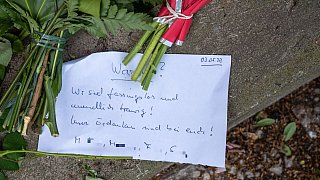 Warum?
Wir sind fassungslos und
unendlich traurig!
Unsere Gedanken sind bei euch!
M M